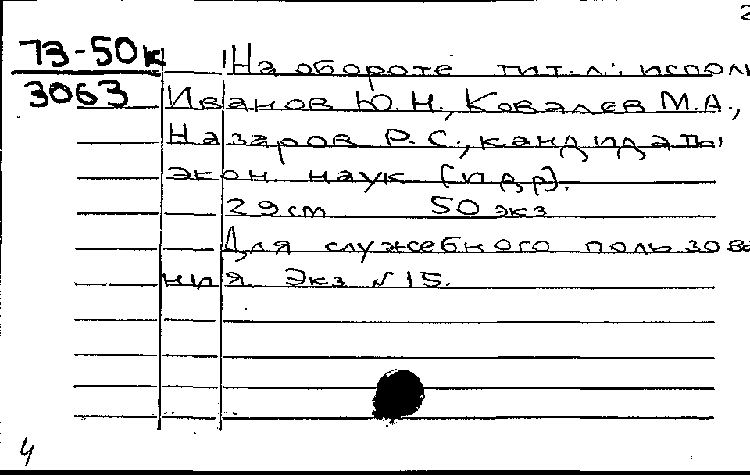 2
73-50к
3063
На обороте тит.л.: испол
Иванов Ю.Н., Ковалев М.А.,
Назаров Р.С., кандидаты
экон. наук [и др].
29см 50 экз
Для служебного пользова
ния. Экз № 15.
4